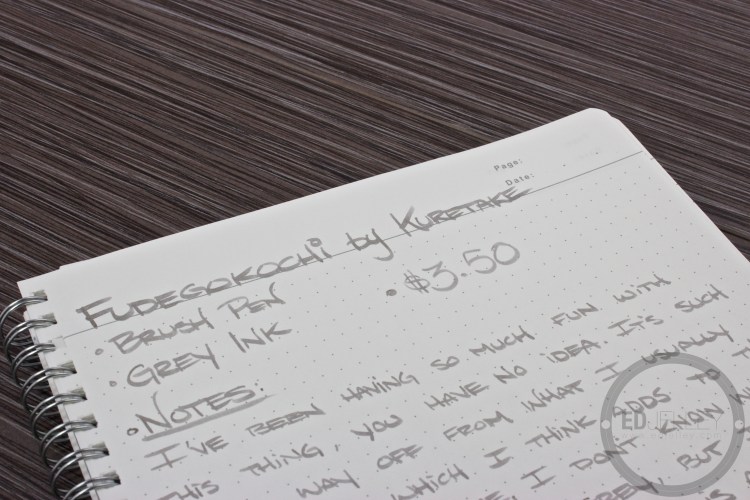 Page:
Date:
FUDEGOKOCHI by KURETAKE
• BRUSH PEN • $3.50
• GREY INK
• NOTES:
I'VE BEEN HAVING SO MUCH FUN WITH
THIS THING, YOU HAVE NO IDEA. IT'S SUCH
WAY OFF FROM WHAT I USUALLY
WHICH I THINK ADDS TO
I DON'T KNOW
BUT